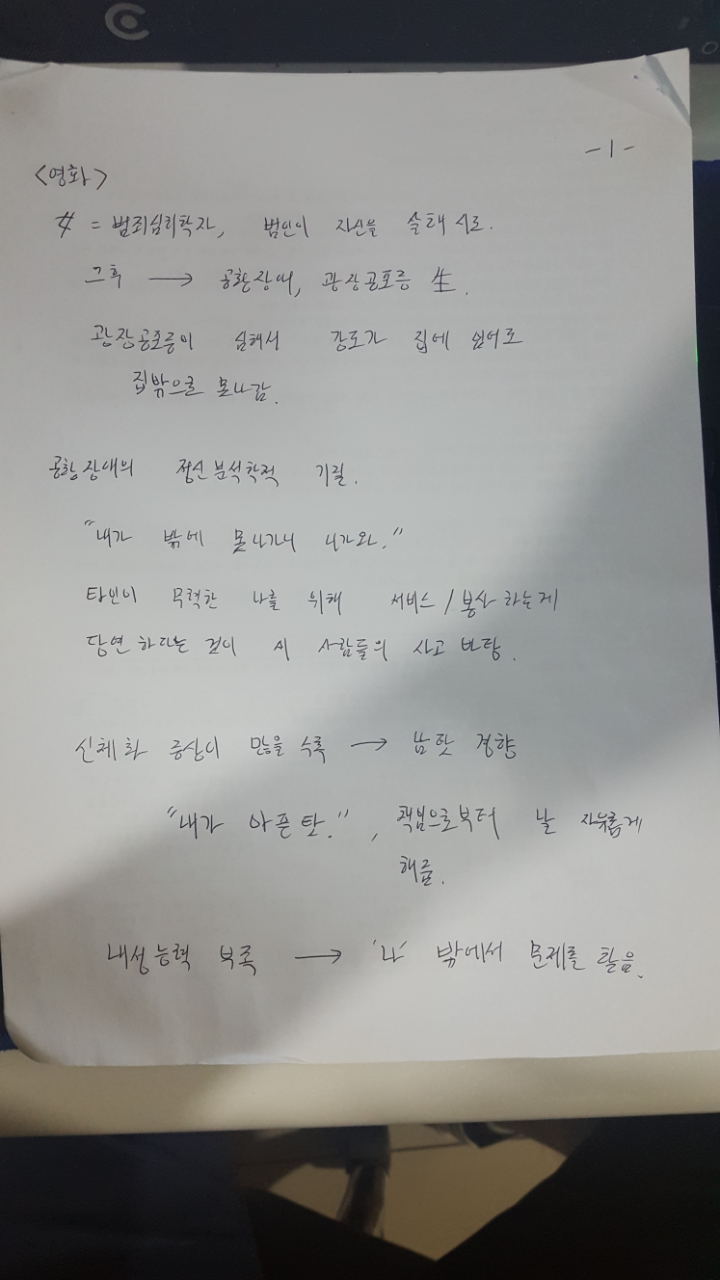 -1-
<영화>
女 = 범죄심리학자, 범인이 자신을 살해 시도.
그후 → 공황장애, 광장공포증 生.
광장공포증이 심해서 강도가 집에 있어도
집밖으로 못나감.
공황장애의 정신분석학적 기질.
"내가 밖에 못나가니 니가와."
타인이 무력한 나를 위해 서비스/봉사 하는게
당연하다는 것이 이 사람들의 사고 바탕.
신체화 증상이 많을 수록 → 남탓 경향
"내가 아픈탓.", 책임으로부터 날 자유롭게
해줌.
내성능력 부족 → '나' 밖에서 문제를 찾음.